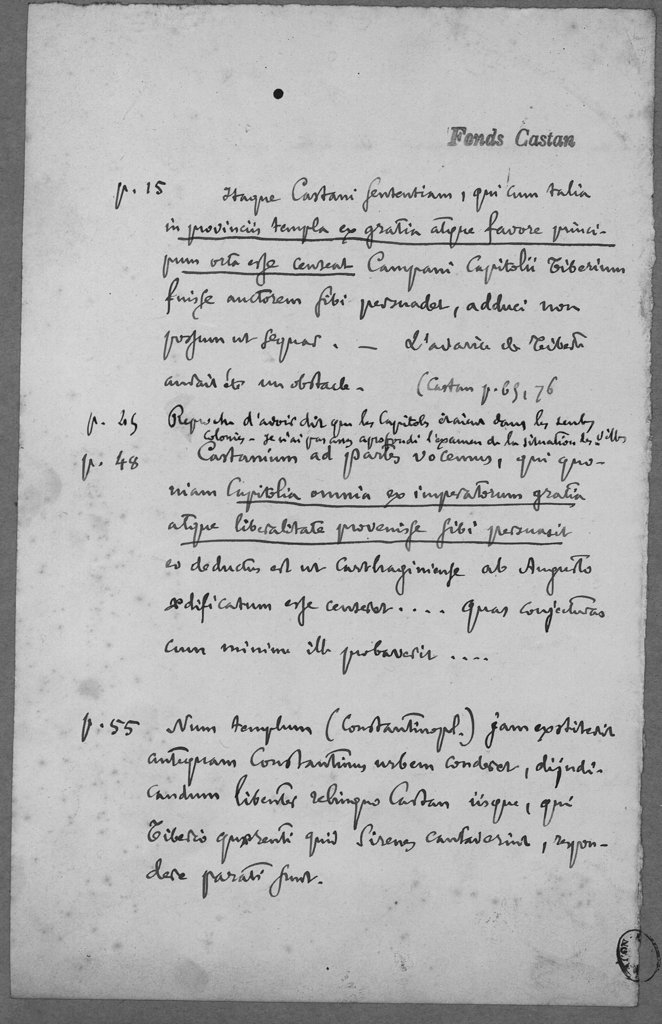 Fonds Castan
p. 15 Itaque Castani sententiam, qui cum talia
in provinciis templa ex gratia atque favore princi-
pum orta esse censeat Campani Capitolii Tiberium
fuisse auctorem sibi persuadet, adduci non
possum ut sequar. — L'avarice de Tibère
aurait été un obstacle. (Castan p. 65, 76
p. 45 Reproche d'avoir dit que les Capitoles étaient dans les seules
Colonies - je n'ai pas assez approfondi l'examen de la situation des villes
p. 48 Castanium ad partes vocemus, qui quo-
niam Capitolia omnia ex imperatorum gratia
atque liberalitate provenisse sibi persuasit
eo deductus est ut Carthaginiense ab Augusto
ædificatum esse censeret.... quas conjecturas
cum minime ille probaverit ....
p. 55 Num templum (Constantinopl.) jam exstiterit
antequam Constantinus urbem conderet, dijudi-
candum libenter relinquo Castan iisque, qui
Tiberio quærenti quid Sirenes cantaverint, respon-
dere parati sunt.